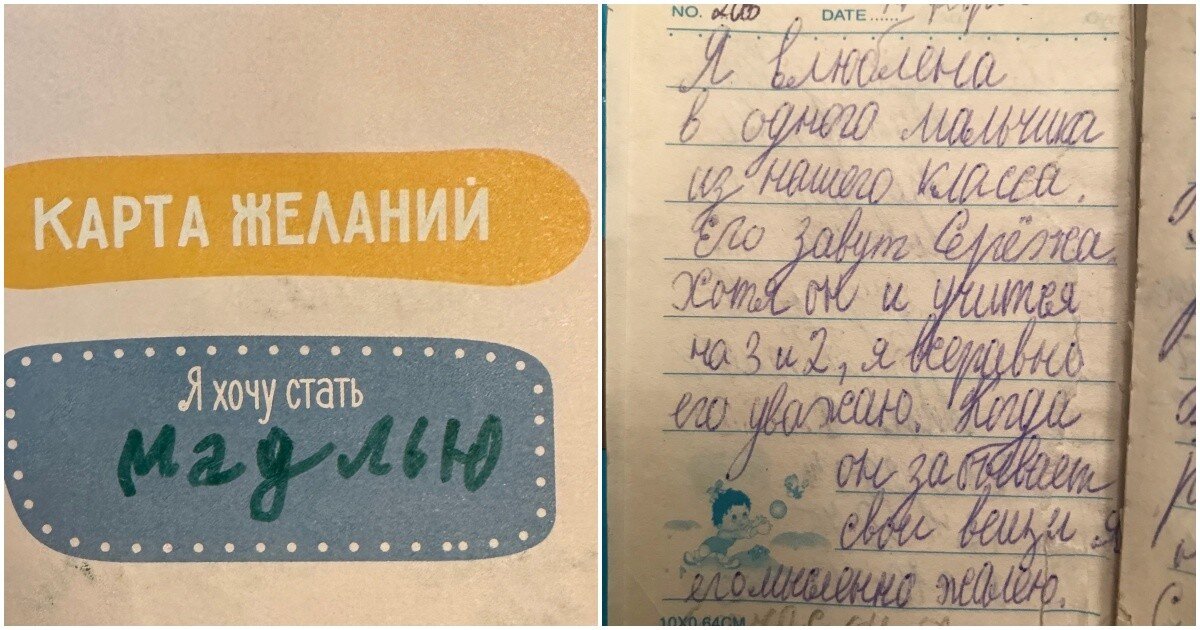 КАРТА ЖЕЛАНИЙ
Я хочу стать
мадлью
NO. 200
DATE ......
Я влюблена
в одного мальчика
из нашего класса.
Его завут Серёжа.
Хотя он и учится
на 3 и 2, я всеравно
его уважаю. Когда
он забывает
свои вещи я
его мысленно жалею.
10X0.64CM